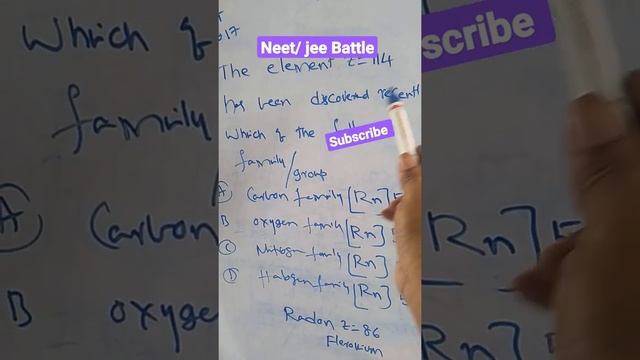 Neet/ jee Battle
Subscribe
2017
The element Z=114
has been discovered recentl
Which of the
family/group
A Carbon family [Rn] 5
B Oxygen family [Rn] 5
C Nitrogen family [Rn]
D Halogen family [Rn] 5
Radon Z=86
Flerovium
Which of
family
A Carbon
B oxygen
scribe
[Rn]